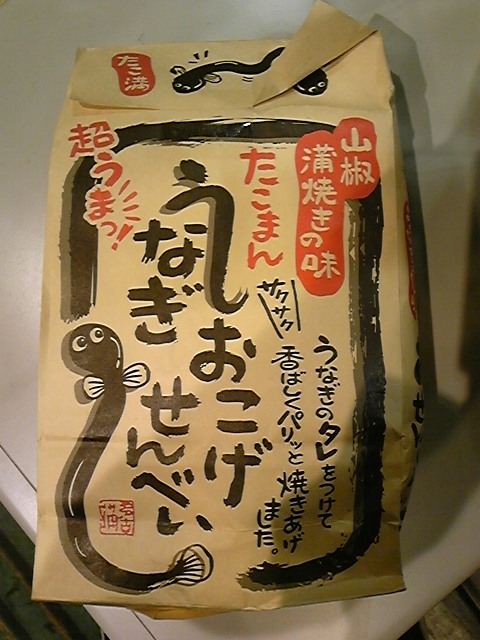 たこ満
山椒
蒲焼きの味
たこまん
超うまっ!
うなぎ
おこげ
せんべい
サクサク
うなぎのタレをつけて
香ばしくパリッと焼きあげ
ました。